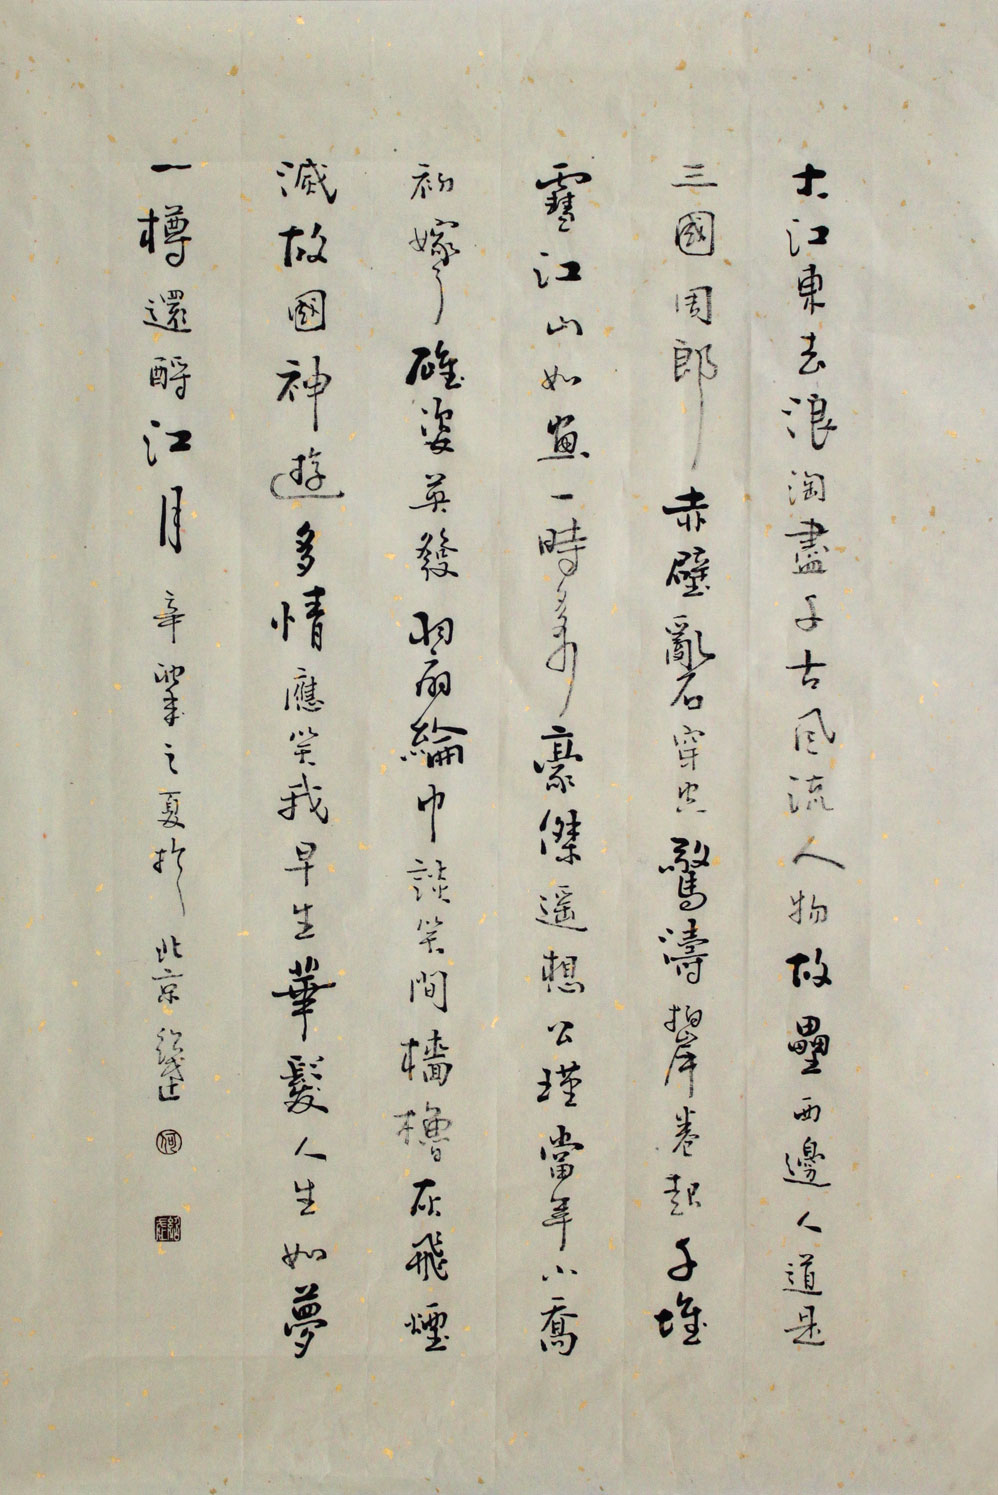 大江東去浪淘盡千古風流人物故壘西邊人道是
三國周郎赤壁亂石穿空驚濤拍岸卷起千堆
雪江山如畫一時多少豪傑遥想公瑾當年小喬
初嫁了雄姿英發羽扇綸巾談笑間檣櫓灰飛煙
滅故國神遊多情應笑我早生華髮人生如夢
一樽還酹江月
辛之夏於北京
何